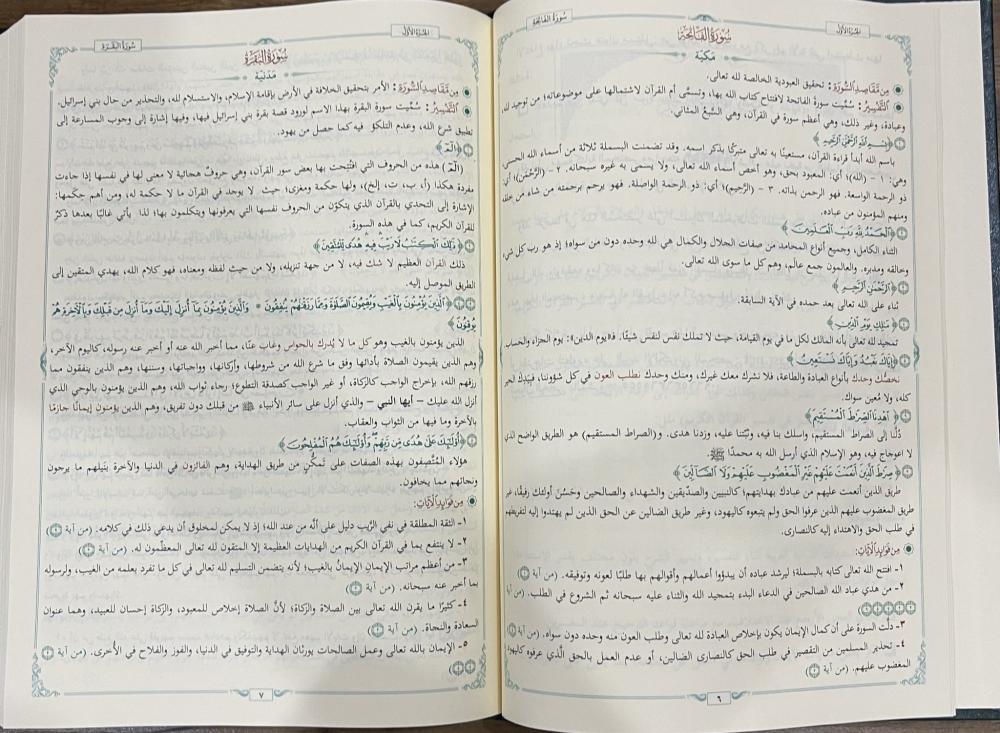 الجزء الأول
سورة الفاتحة
سُورَةُ الفَاتِحَةِ
مَكيّة
من مقاصد السورة: تحقيق العبودية الخالصة لله تعالى.
التفسير: سُمِّيت سورة الفاتحة لافتتاح كتاب الله بها، وتسمَّى أم القرآن لاشتمالها على موضوعاته؛ من توحيد لله،
وعبادة، وغير ذلك، وهي أعظم سورة في القرآن، وهي السَّبْعُ المثاني.
﴿بِسْمِ اللَّهِ الرَّحْمَٰنِ الرَّحِيمِ﴾
باسم الله أبدأ قراءة القرآن، مستعينًا به تعالى متبركًا بذكر اسمه. وقد تضمنت البسملة ثلاثة من أسماء الله الحسنى،
وهي: ١ – (الله)؛ أي: المعبود بحق، وهو أخص أسماء الله تعالى، ولا يسمى به غيره سبحانه. ٢ – (الرَّحْمَن)؛ أي:
ذو الرحمة الواسعة. فهو الرحمن بذاته. ٣ – (الرَّحِيم)؛ أي: ذو الرحمة الواصلة. فهو يرحم برحمته من شاء من خلقه
ومنهم المؤمنون من عباده.
﴿الْحَمْدُ لِلَّهِ رَبِّ الْعَالَمِينَ﴾
الثناء الكامل، وجميع أنواع المحامد من صفات الجلال والكمال هي لله وحده دون من سواه؛ إذ هو رب كل شيء
وخالقه ومدبره. والعالمون جمع عالَم، وهم كل ما سوى الله تعالى.
﴿الرَّحْمَٰنِ الرَّحِيمِ﴾
ثناء على الله تعالى بعد حمده في الآية السابقة.
﴿مَٰلِكِ يَوْمِ الدِّينِ﴾
تمجيد لله تعالى بأنه المالك لكل ما في يوم القيامة، حيث لا تملك نفس لنفس شيئًا. فـ«يوم الدين»: يوم الجزاء والحساب.
﴿إِيَّاكَ نَعْبُدُ وَإِيَّاكَ نَسْتَعِينُ﴾
نخصُّك وحدك بأنواع العبادة والطاعة، فلا نشرك معك غيرك، ومنك وحدك نطلب العون في كل شؤوننا، فبِيَدِكَ الخير
كله، ولا مُعين سواك.
﴿اهْدِنَا الصِّرَاطَ الْمُسْتَقِيمَ﴾
دُلَّنا إلى الصراط المستقيم، واسلك بنا فيه، وثبّتنا عليه، وزدنا هدى. و(الصراط المستقيم) هو الطريق الواضح الذي
لا اعوجاج فيه، وهو الإسلام الذي أرسل الله به محمدًا ﷺ.
﴿صِرَاطَ الَّذِينَ أَنْعَمْتَ عَلَيْهِمْ غَيْرِ الْمَغْضُوبِ عَلَيْهِمْ وَلَا الضَّالِّينَ﴾
طريق الذين أنعمت عليهم من عبادك بهدايتهم؛ كالنبيين والصدّيقين والشهداء والصالحين وحَسُنَ أولئك رفيقًا، غير
طريق المغضوب عليهم الذين عرفوا الحق ولم يتبعوه كاليهود، وغير طريق الضالين عن الحق الذين لم يهتدوا إليه لتفريطهم
في طلب الحق والاهتداء إليه كالنصارى.
من فوائد الآيات:
١- افتتح الله تعالى كتابه بالبسملة؛ ليرشد عباده أن يبدؤوا أعمالهم وأقوالهم بها طلبًا لعونه وتوفيقه. (من آية ١)
٢- من هدي عباد الله الصالحين في الدعاء البدء بتمجيد الله والثناء عليه سبحانه ثم الشروع في الطلب. (من آية
٣- دلَّت السورة على أن كمال الإيمان يكون بإخلاص العبادة لله تعالى وطلب العون منه وحده دون سواه. (من آية
٤- تحذير المسلمين من التقصير في طلب الحق كالنصارى الضالين، أو عدم العمل بالحق الَّذي عرفوه كاليهود
المغضوب عليهم. (من آية
٦
الجزء الأول
سورة البقرة
سُورَةُ البَقَرَةِ
مَدَنيّة
من مقاصد السورة: الأمر بتحقيق الخلافة في الأرض بإقامة الإسلام، والاستسلام لله، والتحذير من حال بني إسرائيل.
التفسير: سُمِّيت سورة البقرة بهذا الاسم لورود قصة بقرة بني إسرائيل فيها، وفيها إشارة إلى وجوب المسارعة إلى
تطبيق شرع الله، وعدم التلكؤ فيه كما حصل من يهود.
﴿الٓمٓ﴾
(الٓمٓ) هذه من الحروف التي افتتحت بها بعض سور القرآن، وهي حروفٌ هجائية لا معنى لها في نفسها إذا جاءت
مفردة هكذا (أ، ب، ت، إلخ)، ولها حكمة ومغزى؛ حيث لا يوجد في القرآن ما لا حكمة له، ومن أهم حِكَمِها:
الإشارة إلى التحدي بالقرآن الذي يتكوّن من الحروف نفسها التي يعرفونها ويتكلمون بها؛ لذا يأتي غالبًا بعدها ذكرٌ
للقرآن الكريم، كما في هذه السورة.
﴿ذَٰلِكَ الْكِتَٰبُ لَا رَيْبَ فِيهِ هُدًى لِّلْمُتَّقِينَ﴾
ذلك القرآن العظيم لا شك فيه، لا من جهة تنزيله، ولا من حيث لفظه ومعناه، فهو كلام الله، يهدي المتقين إلى
الطريق الموصل إليه.
﴿الَّذِينَ يُؤْمِنُونَ بِالْغَيْبِ وَيُقِيمُونَ الصَّلَوٰةَ وَمِمَّا رَزَقْنَٰهُمْ يُنفِقُونَ * وَالَّذِينَ يُؤْمِنُونَ بِمَا أُنزِلَ إِلَيْكَ وَمَا أُنزِلَ مِن قَبْلِكَ وَبِالْآخِرَةِ هُمْ
يُوقِنُونَ﴾
الذين يؤمنون بالغيب وهو كل ما لا يُدرك بالحواس وغاب عنّا، مما أخبر الله عنه أو أخبر عنه رسوله، كاليوم الآخر،
وهم الذين يقيمون الصلاة بأدائها وفق ما شرع الله من شروطها، وأركانها، وواجباتها، وسننها، وهم الذين ينفقون مما
رزقهم الله، بإخراج الواجب كالزكاة، أو غير الواجب كصدقة التطوع؛ رجاء ثواب الله، وهم الذين يؤمنون بالوحي الذي
أنزل الله عليك – أيها النبي – والذي أنزل على سائر الأنبياء من قبلك دون تفريق، وهم الذين يؤمنون إيمانًا جازمًا
بالآخرة وما فيها من الثواب والعقاب.
﴿أُولَٰئِكَ عَلَىٰ هُدًى مِّن رَّبِّهِمْ وَأُولَٰئِكَ هُمُ الْمُفْلِحُونَ﴾
هؤلاء المتَّصِفون بهذه الصفات على تَمكُّنٍ من طريق الهداية، وهم الفائزون في الدنيا والآخرة بنَيلهم ما يرجون
ونجاتهم مما يخافون.
من فوائد الآيات:
١- الثقة المطلقة في نفي الرَّيب دليل على أنَّه من عند الله؛ إذ لا يمكن لمخلوق أن يدعي ذلك في كلامه. (من آية ٢)
٢- لا ينتفع بما في القرآن الكريم من الهدايات العظيمة إلا المتقون لله تعالى المعظِّمون له. (من آية ٢)
٣- من أعظم مراتب الإيمانِ الإيمانُ بالغيب؛ لأنه يتضمن التسليم لله تعالى في كل ما تفرد بعلمه من الغيب، ولرسوله
بما أخبر عنه سبحانه. (من آية ٣)
٤- كثيرًا ما يقرن الله تعالى بين الصلاة والزكاة؛ لأنَّ الصلاة إخلاص للمعبود، والزكاة إحسان للعبيد، وهما عنوان
السعادة والنجاة. (من آية ٣)
٥- الإيمان بالله تعالى وعمل الصالحات يورثان الهداية والتوفيق في الدنيا، والفوز والفلاح في الأُخرى. (من آية
٧